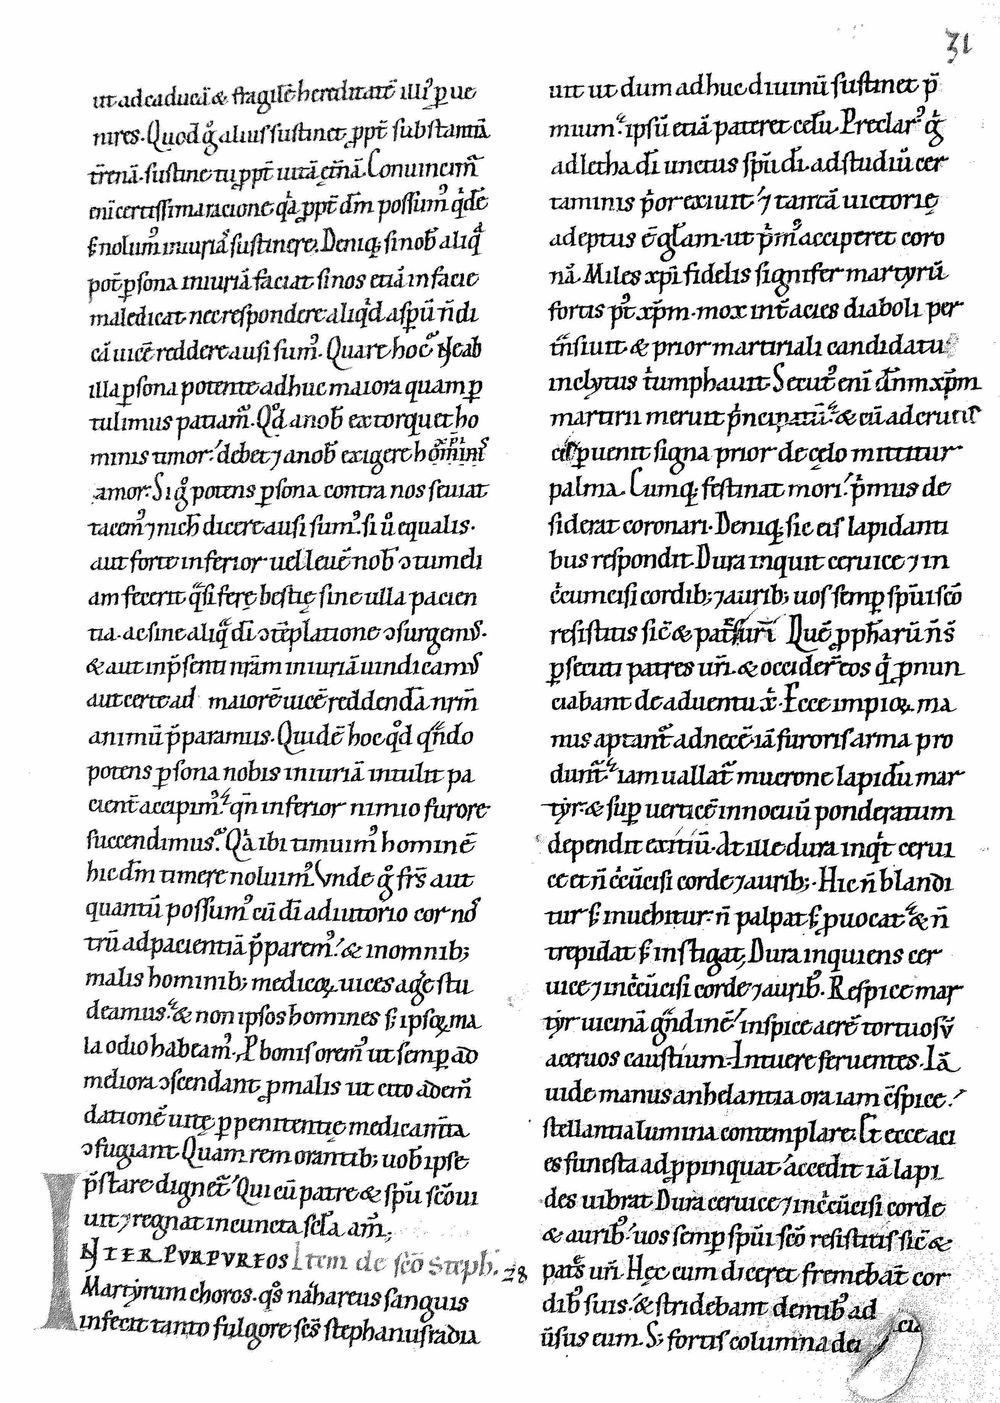 31
ut ad caducā & fragilē hereditatē illiꝰ ꝑue
nires. Quod gͦ alius sustinet ꝓpt̄ substantiā
t̄renā. sustine tu ꝓpt̄ uitā et̄nā. Conuincim̄
eni certissima racione qͣ ꝓpt̄ dm̄ possumꝰ qͥdē
s; nolumꝰ iniuriā sustinere. Deniq; si nob̄ aliqͣ
pot̄ ꝑsona iniuriā faciat si nos etiā in facie
maledicat nec respondere aliqͥd asꝑū n̄ di
cā uicē reddere ausi sumꝰ. Quare hoc? Ne ab
illa ꝑsona potente adhuc maiora quam ꝑ
tulimus patiam̄. Qd̓ a nob̄ extorquet ho
minis timor. debet ⁊ a nob̄ exigere xp̄i
amor. Si gͦ potens ꝑsona contra nos seuiat
tacemꝰ ⁊ nich̄ dicere ausi sumꝰ. si ů equalis.
aut forte inferior uel leuē nob̄ ↄtumeli
am fecerit qͣsi ferę bestię sine ulla pacien
tia. ac sine aliqͣ di ↄtēplatione ↄsurgemꝰ.
& aut in p̄senti nr̄am iniuriā uindicamꝰ
aut certe ad maiorē uicē reddendā nr̄m
animū p̄paramus. Quidē hoc qͦd qn̄do
potens ꝑsona nobis iniuriā intulit pa
cient̄ accipimꝰ. qn̄ inferior nimio furore
succendimus? Qͣ ibi timuimꝰ hominē
hic dm̄ timere noluimꝰ. Vnde gͦ fr̄s aut
quantū possumꝰ cū di adiutorio cor nos̄
trū ad pacientiā p̄paremꝰ. & in omnib;
malis hominib; medicoꝝ uices agere stu
deamus. & non ipsos homines s; ipsoꝝ ma
la odio habeamꝰ. P bonis oremꝰ ut semꝑ ad
meliora ↄscendant ꝓ malis ut cito ad em̄
dationē uitę ꝑ penitentię medicam̄ta
ↄfugiant. Quam rem orantib; uob̄ ipse
p̄stare dignet̄. Qui cū patre & spū sc̄o ui
uit ⁊ regnat in cuncta sc̄la am̄.
INTER PVRPVREOS Item de sc̄o Steph. 28
Martyrum choros. qͦs naẜareus sanguis
infecit tanto fulgore sc̄s stephanus radia
uit ut dum adhuc diuinū sustinet p̄
mium. ipsū etiā pateret celū. Preclarꝰ gͦ
adletha dī unctus spū dī. ad studiū cer
taminis pͥor exiuit ⁊ tantā uictorię
adeptus ē gl̄am. ut pͥmꝰ acciperet coro
nā. Miles xp̄i fidelis signifer martyrū
fortis pꝰt xp̄m. mox int̄ acies diaboli per
tͣnsiuit & prior martiriali candidatu
inclytus tͥumphauit. Secutꝰ eni dn̄m xp̄m
martirii meruit pͥncipatū. & cū ad crucis
ꝑuenit signa prior de cęlo mittitur
palma. Cumq; festinat mori. pͥmus de
siderat coronari. Deniq; sic eis lapidanti
bus respondit. Dura inquit ceruice ⁊ in
cͥcumcisi cordib; ⁊ aurib; uos semꝑ spūi sc̄o
resistitis sic̄ & patͤs uri Quē ꝓph̄arū n̄ s̄
ꝑsecuti patres uri. & occider̄ eos qͥ ꝓnun
ciabant de aduentu xͥ. Ecce impioꝝ ma
nus aptant̄ ad necē iā furoris arma pro
dunt̄. iam uallat̄ mucrone lapidū mar
tyr. & suꝑ uerticē innocuū ponderatum
dependit exitiū. At ille dura inqͥt cerui
ce et n̄ cͥcūcisi corde ⁊ aurib;. Hic n̄ blandi
tur s; inuehitur. n̄ palpat s; ꝓuocat & n̄
trepidat s; instigat, Dura inquiens cer
uice ⁊ incͥcūcisi corde ⁊ auribꝰ. Respice mar
tyr uicinā gͣndinē. inspice aerē tortuosū
aceruos caustium. Intuere feruentes. Iā
uide manus anhelantia ora iam c̄spice.
stellantia lumina contemplare. Et ecce aci
es funesta adꝓpinquat accedit iā lapi
des uibrat Dura ceruice ⁊ incͥcūcisi corde
& auribꝰ. uos semꝑ spūi sc̄o resistitis sic̄ &
patͤs uri. Hęc cum diceret fremebāt cor
dibꝰ suis. & stridebant dentibꝰ ad
ūsus eum. S; fortis columna dei